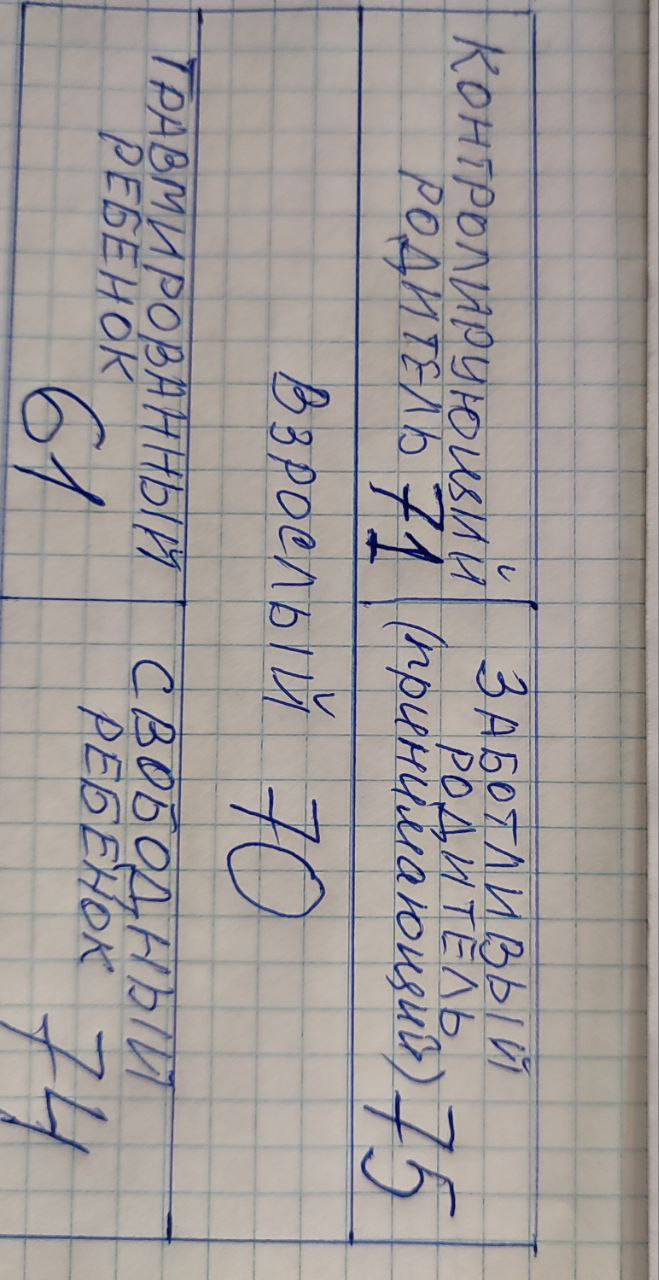 КОНТРОЛИРУЮЩИЙ
РОДИТЕЛЬ 71
ЗАБОТЛИВЫЙ
РОДИТЕЛЬ
(принимающий) 75
ВЗРОСЛЫЙ 70
ТРАВМИРОВАННЫЙ
РЕБЕНОК 61
СВОБОДНЫЙ
РЕБЕНОК 74